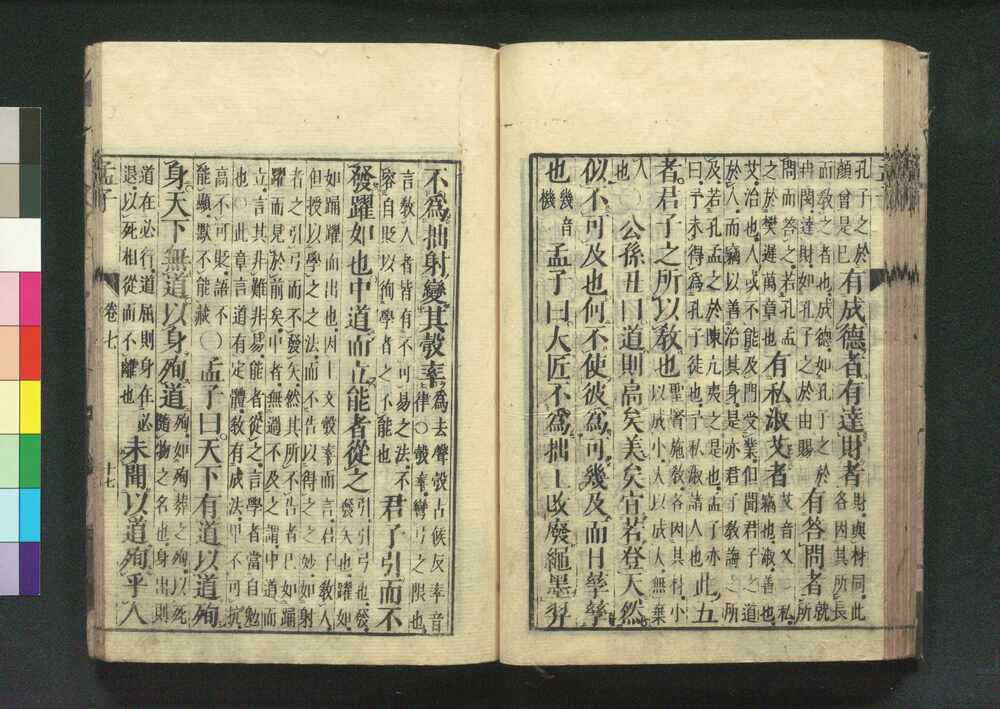 孔子之於
顔曾是巳
有成德者有達財者
財與材同此
各因其所長
而教之者也成德如孔子之於
冉閔達財如孔子之於由賜
有答問者
就
所
問而答之若孔孟
之於樊遲萬章也
有私淑艾者
艾音乂○私
竊也淑善也
艾治也人或不能及門受業但聞君子之道
於人而竊以善治其身是亦君子教誨之所
及若孔孟之於陳亢夷之是也孟子亦
曰予未得爲孔子徒也予私淑諸人也
此五
者君子之所以教也
聖賢施教各因其材小
以成小大以成大無棄
人
也
○公孫丑曰道則高矣美矣宜若登天然
似不可及也何不使彼爲可幾及而日孳孳
也
幾音
機
孟子曰大匠不爲拙工改廢繩墨羿
不爲拙射變其彀率
爲去聲彀古候反率音
律○彀率彎弓之限也
言教人者皆有不可易之法不
容自貶以徇學者之不能也
君子引而不
發躍如也中道而立能者從之
引引弓也發
發矢也躍如
如踊躍而出也因上文彀率而言君子教人
但授以學之之法而不告以得之之妙如射
者之引弓而不發矢然其所不告者已如踊
躍而見於前矣中者無過不及之謂中道而
立言其非難非易能者從之言學者當自勉
也○此章言道有定體教有成法卑不可抗
高不可貶語不
能顯默不能藏
○孟子曰天下有道以道殉
身天下無道以身殉道
殉如殉葬之殉以死
隨物之名也身出則
道在必行道屈則身在必
退以死相從而不離也
未聞以道殉乎人
孟子
卷七
十七